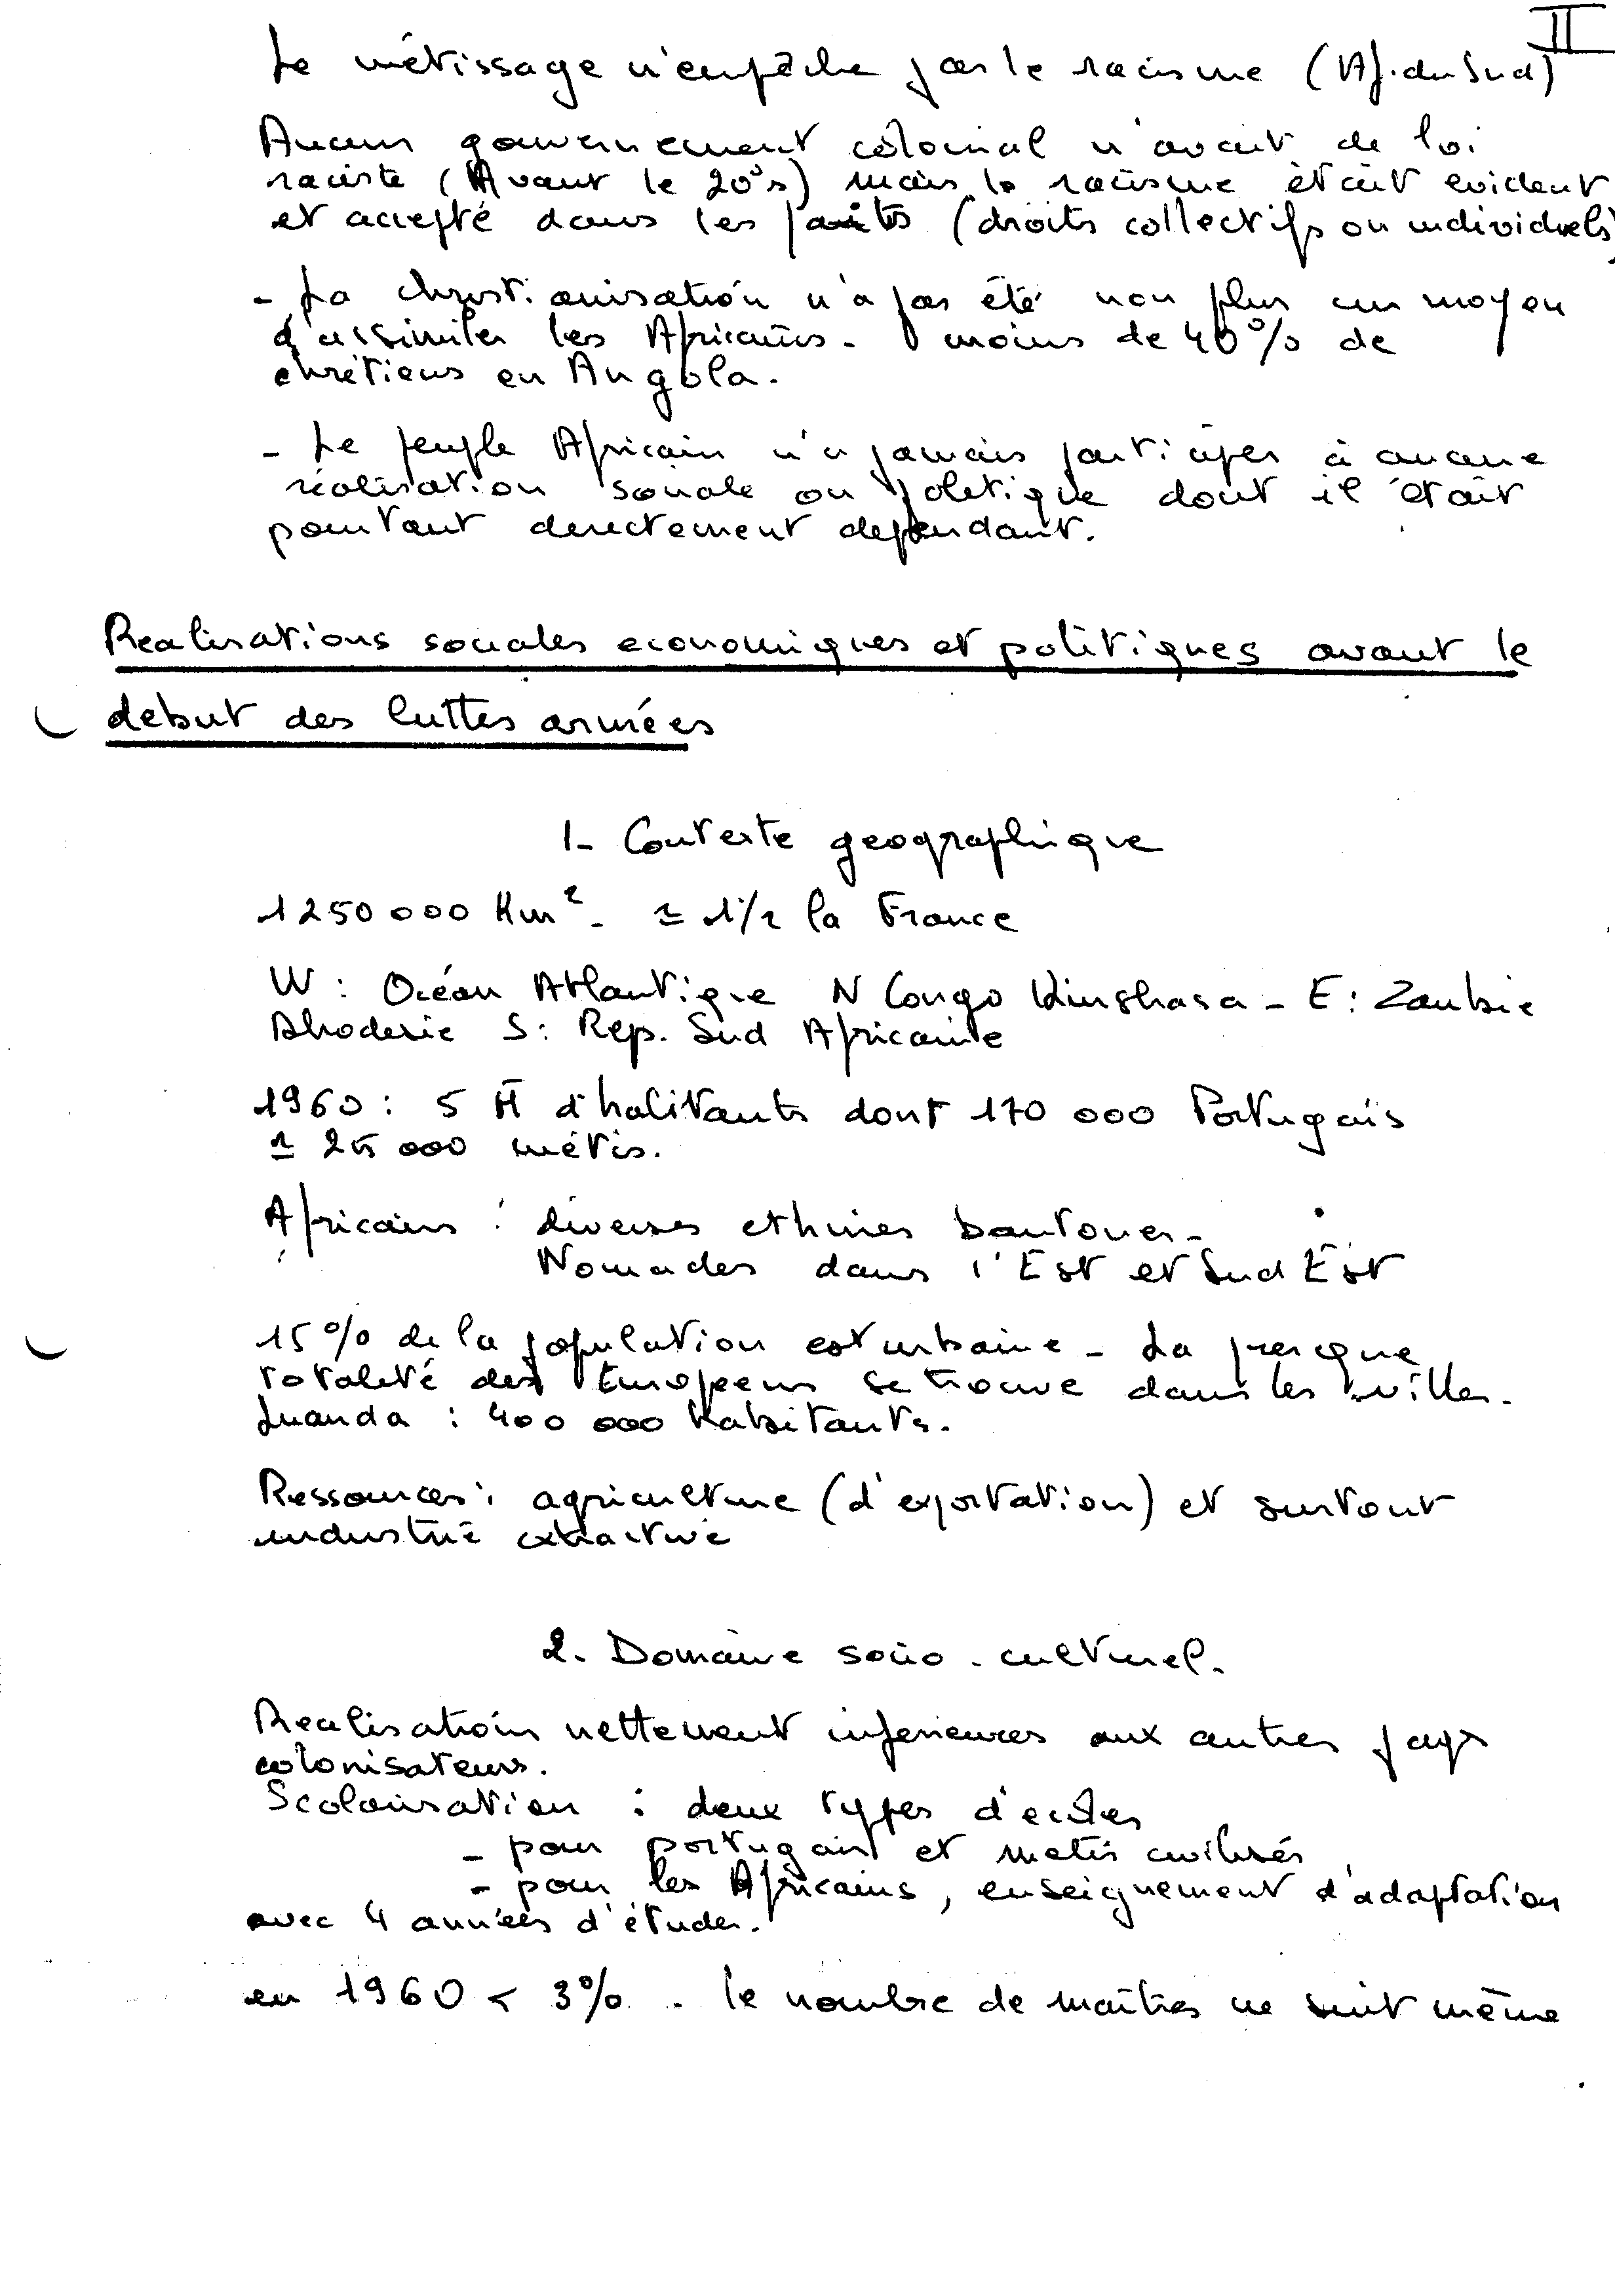 II
Le métissage n'empêche pas le racisme (Af. du Sud)
Aucun gouvernement colonial n'avait de loi
raciste (Avant le 20°s) mais le racisme était evident
et accepté dans les faits (droits collectifs ou individuels)
- La christianisation n'a pas été non plus un moyen
d'assimiler les Africains. moins de 40% de
chrétiens en Angola.
- Le peuple Africain n'a jamais participer à aucune
réalisation sociale ou politique dont il était
pourtant derectement dependant.
Realisations sociales economiques et politiques avant le
debut des luttes armées
1- Contexte geographique
1250000 Km². ≃ 1/2 la France
W : Océan Atlantique N Congo Kinshasa - E : Zambie
Rhodesie S : Rep. Sud Africaine
1960 : 5 M d'habitants dont 170 000 Portugais
≃ 25 000 métis.
Africains : diverses ethnies bantoues -
Nomades dans l'Est et Sud Est
15% de la population est urbaine - La presque
totalité des Europeens se trouve dans les villes.
Luanda : 400 000 habitants.
Ressources : agriculture (d'exportation) et surtout
industrie extractive
2. Domaine socio-culturel.
Realisations nettement inferieures aux autres pays
colonisateurs.
Scolarisation : deux types d'ecoles
- pour portugais et metis civilisés
- pour les Africains, enseignement d'adaptation
avec 4 années d'études.
en 1960 < 3% . le nombre de maîtres ne suit même